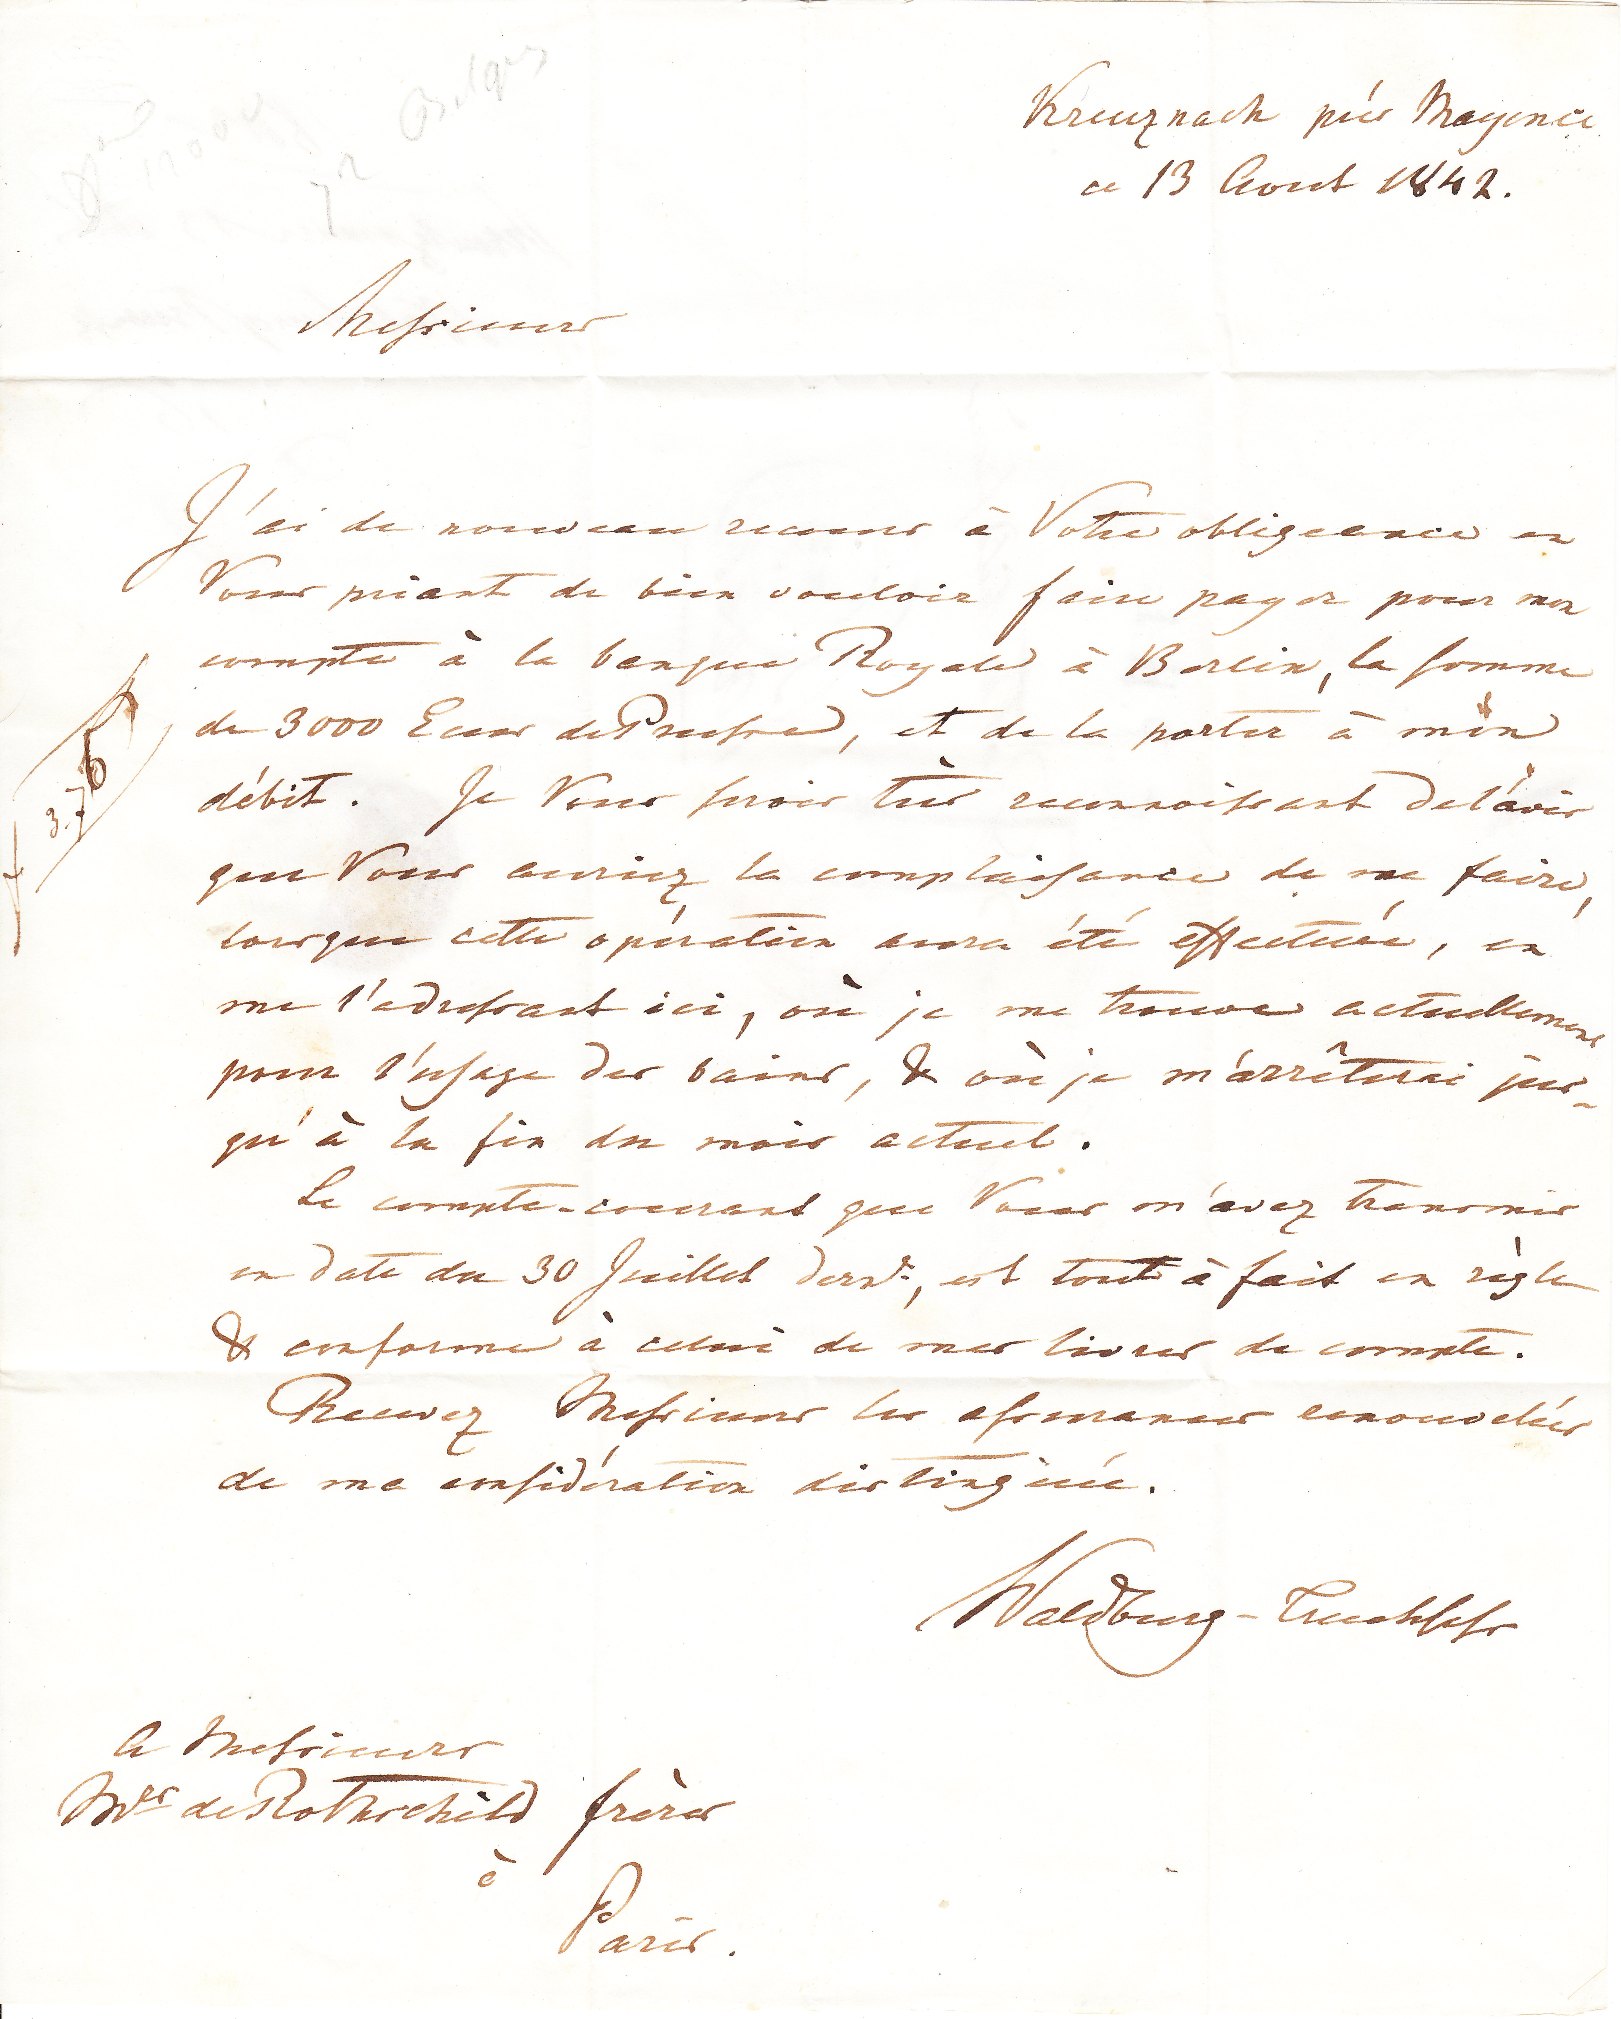 Kreuznach près Mayence
ce 13 Aout 1842.
Messieurs
J'ai de nouveau recours à Votre obligeance en
Vous priant de bien vouloir faire payer pour mon
compte à la banque Royale à Berlin, la somme
de 3000 Ecus de Prusse, et de la porter à mon
débit. Je Vous serois très reconnoissant de l'avis
que Vous auriez la complaisance de me faire,
lorsque cette opération aura été effectuée, en
me l'adressant ici, où je me trouve actuellement
pour l'usage des bains, & où je m'arrêterai jus-
qu'à la fin du mois actuel.
Le compte-courant que Vous m'avez transmis
en date du 30 Juillet dernr., est tout à fait en règle
& conforme à celui de mes livres de compte.
Recevez Messieurs les assurances renouvelées
de ma considération distinguée.
Waldburg-Truchsess
A Messieurs
Mrs de Rothschild frères
à
Paris.